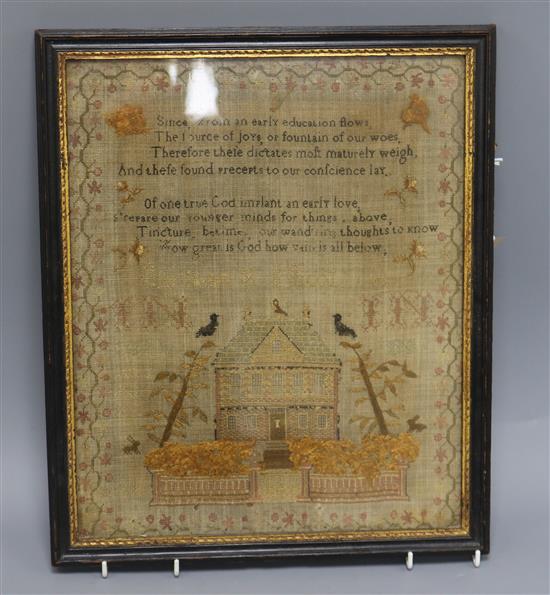 Since from an early education flows,
The ſource of joys, or fountain of our woes,
Therefore theſe dictates moſt maturely weigh,
And theſe ſound precepts to our conſcience lay.
Of one true God implant an early love,
Prepare our younger minds for things, above,
Tincture, betime, our wand'ring thoughts to know
How great is God how vain is all below,
IN IN